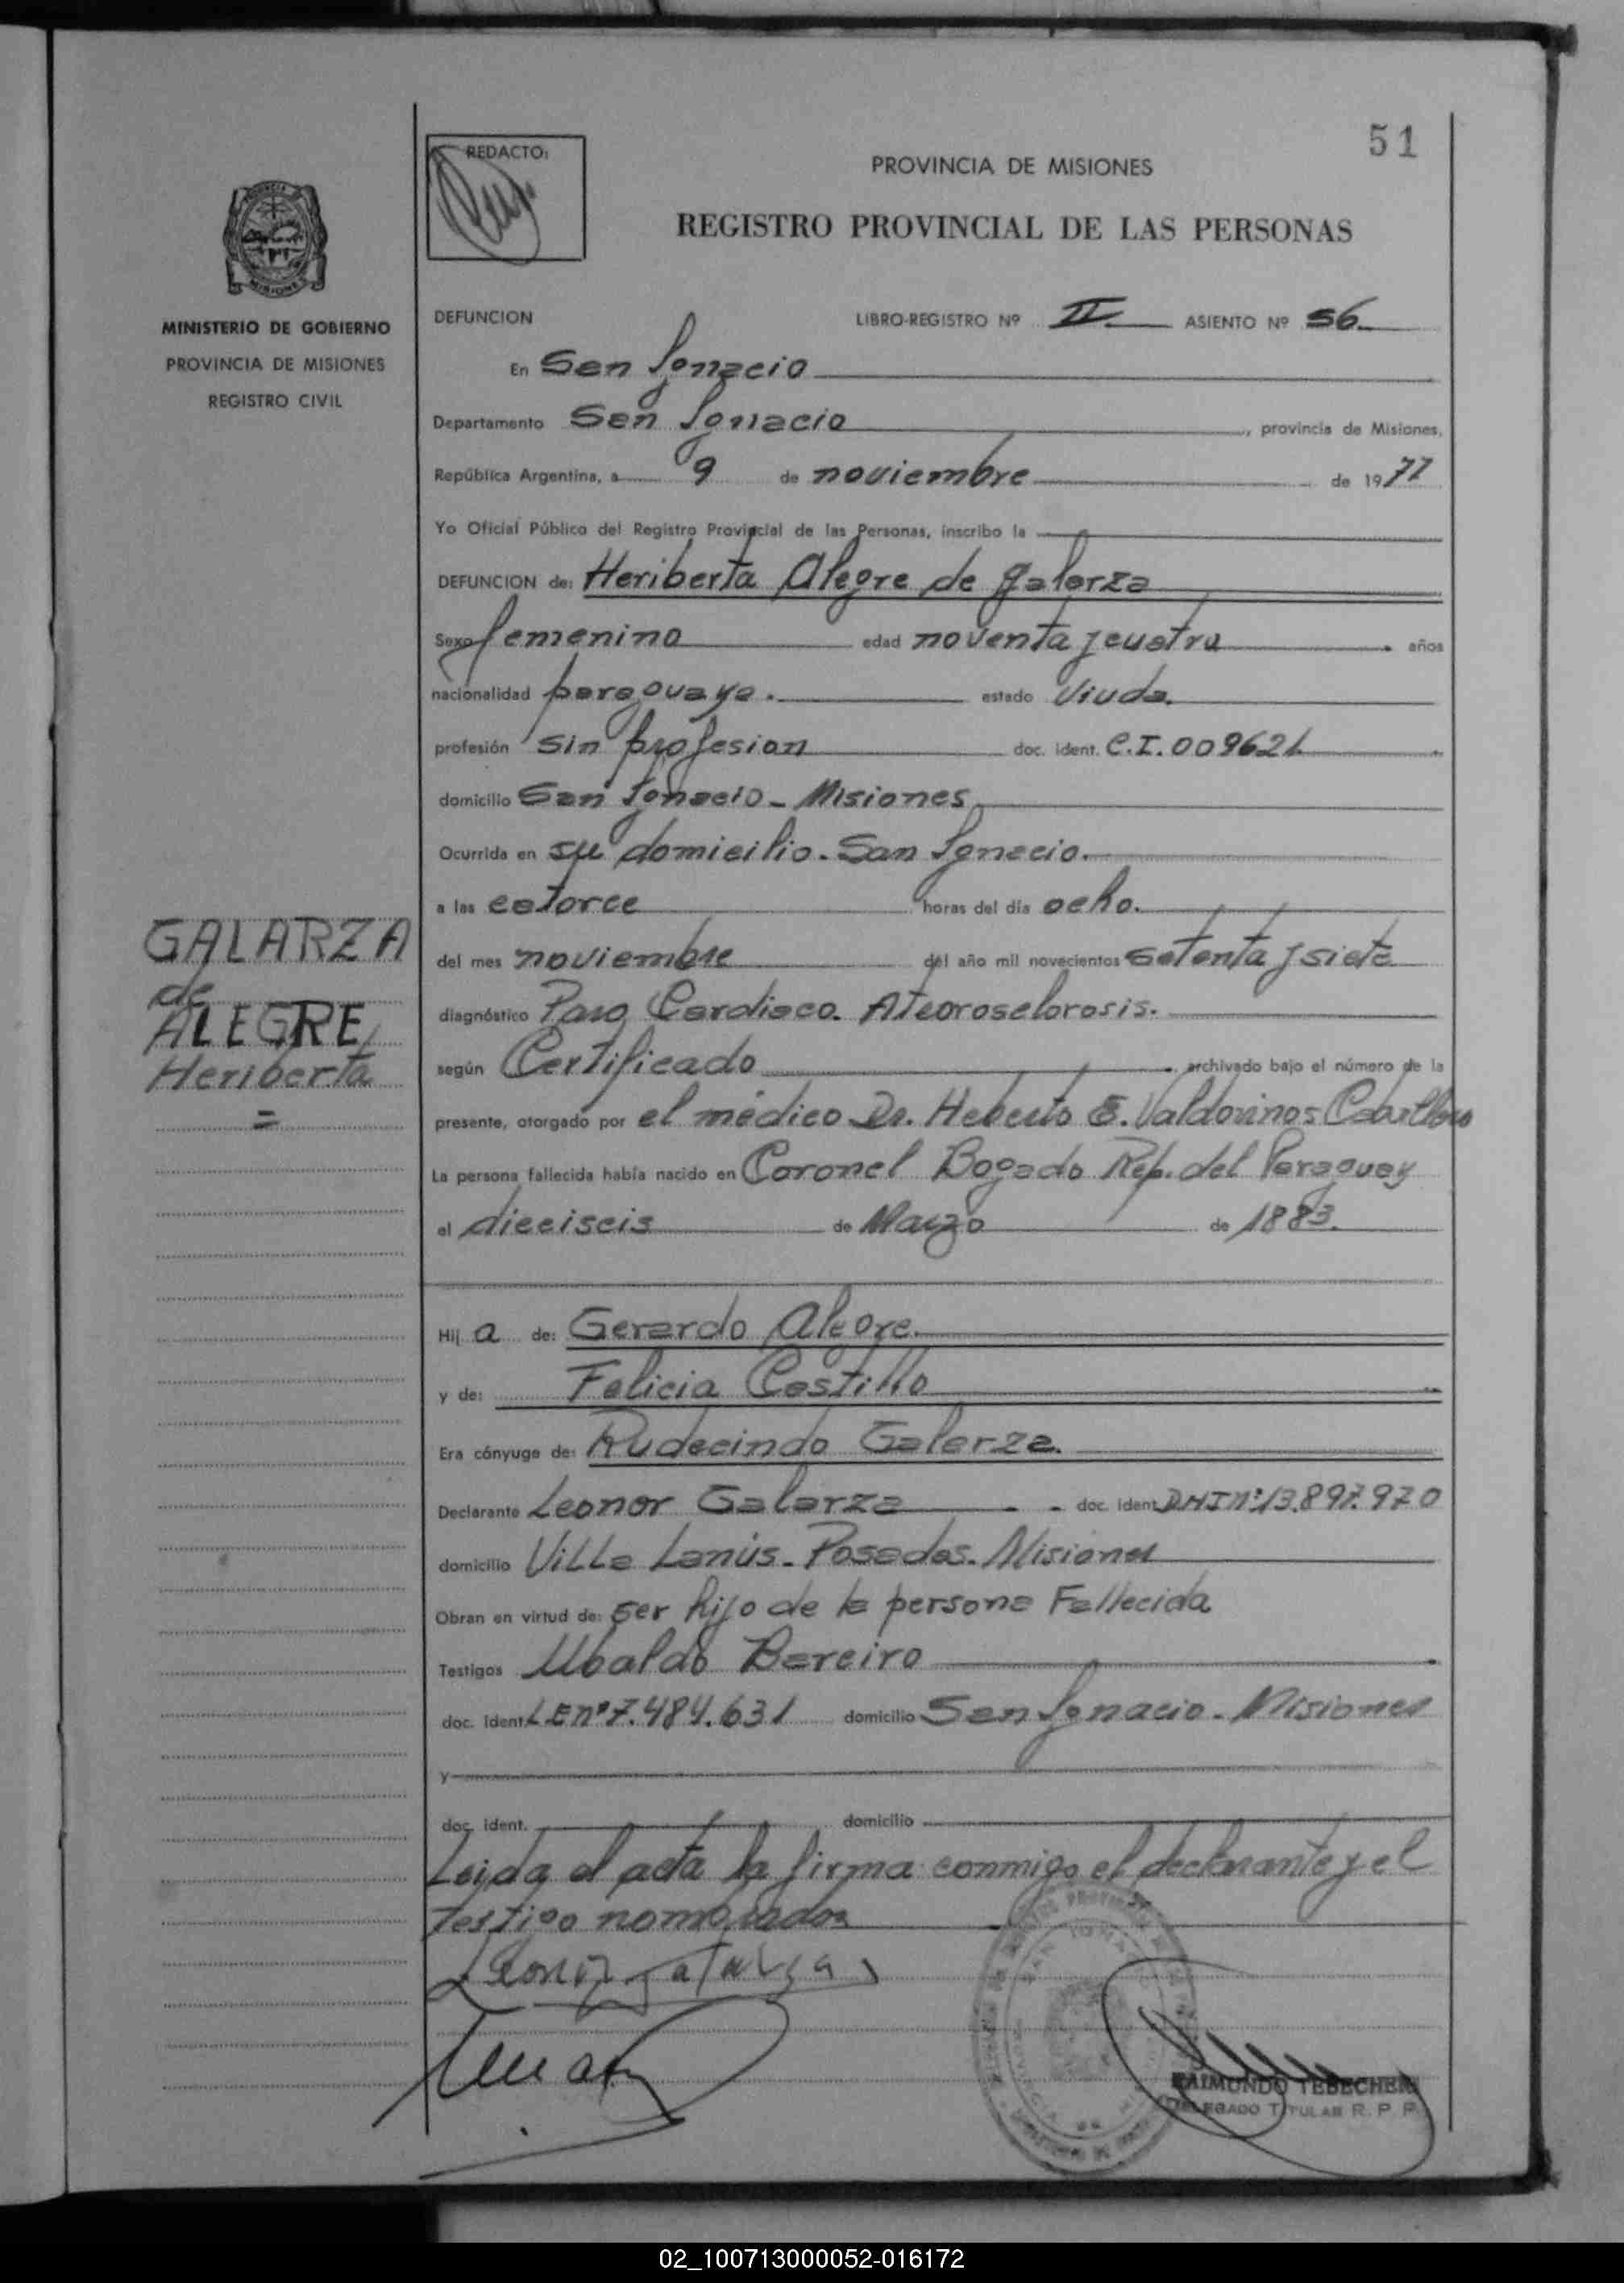 51
REDACTO:
PROVINCIA DE MISIONES
REGISTRO PROVINCIAL DE LAS PERSONAS
MISIONES
MINISTERIO DE GOBIERNO
PROVINCIA DE MISIONES
REGISTRO CIVIL
DEFUNCION LIBRO-REGISTRO Nº II ASIENTO Nº 56
En San Ignacio
Departamento San Ignacio, provincia de Misiones,
República Argentina, a 9 de noviembre de 1977
Yo Oficial Público del Registro Provincial de las Personas, inscribo la
DEFUNCION de: Heriberta Alegre de Galarza
Sexo femenino edad noventa y cuatro años
nacionalidad paraguaya. estado Viuda.
profesión sin profesion doc. ident. C.I. 009621
domicilio San Ignacio - Misiones
Ocurrida en su domicilio. San Ignacio.
a las catorce horas del día ocho.
del mes noviembre del año mil novecientos setenta y siete
diagnóstico Paro Cardiaco. Ateoroselorosis.
según Certificado archivado bajo el número de la
presente, otorgado por el médico Dr. Heberto E. Valdovinos Caballero
La persona fallecida había nacido en Coronel Bogado Rep. del Paraguay
el dieciseis de Marzo de 1883.
GALARZA
de
ALEGRE
Heriberta
=
Hij a de: Gerardo Alegre.
y de: Felicia Castillo
Era cónyuge de: Rudecindo Galarza.
Declarante Leonor Galarza doc. ident. D.N.I Nº 13.897.970
domicilio Villa Lanús - Posadas. Misiones
Obran en virtud de: ser hijo de la persona Fallecida
Testigos Ubaldo Bareiro
doc. ident. L.E nº 7.484.631 domicilio San Ignacio - Misiones
y
doc. ident. domicilio
Leida el acta la firma conmigo el declarante y el
testigo nombrados
Leonor Galarza
RAIMUNDO TEBECHERI
DELEGADO TITULAR R. P. P.
02_100713000052-016172